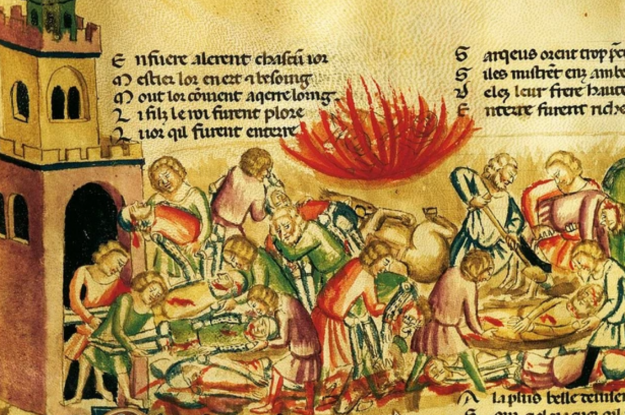 E nfuere alerent chascū ior
M estier lor en ert ⁊ besoing
M out lor cōuient aqerre loing
L i filz le roi furent plore
L uor qil furent enterre
S arqeus orent trop
S iles mistrēt enz ambe
D elez leur frere haute
E nterre furent riche
A la plus belle